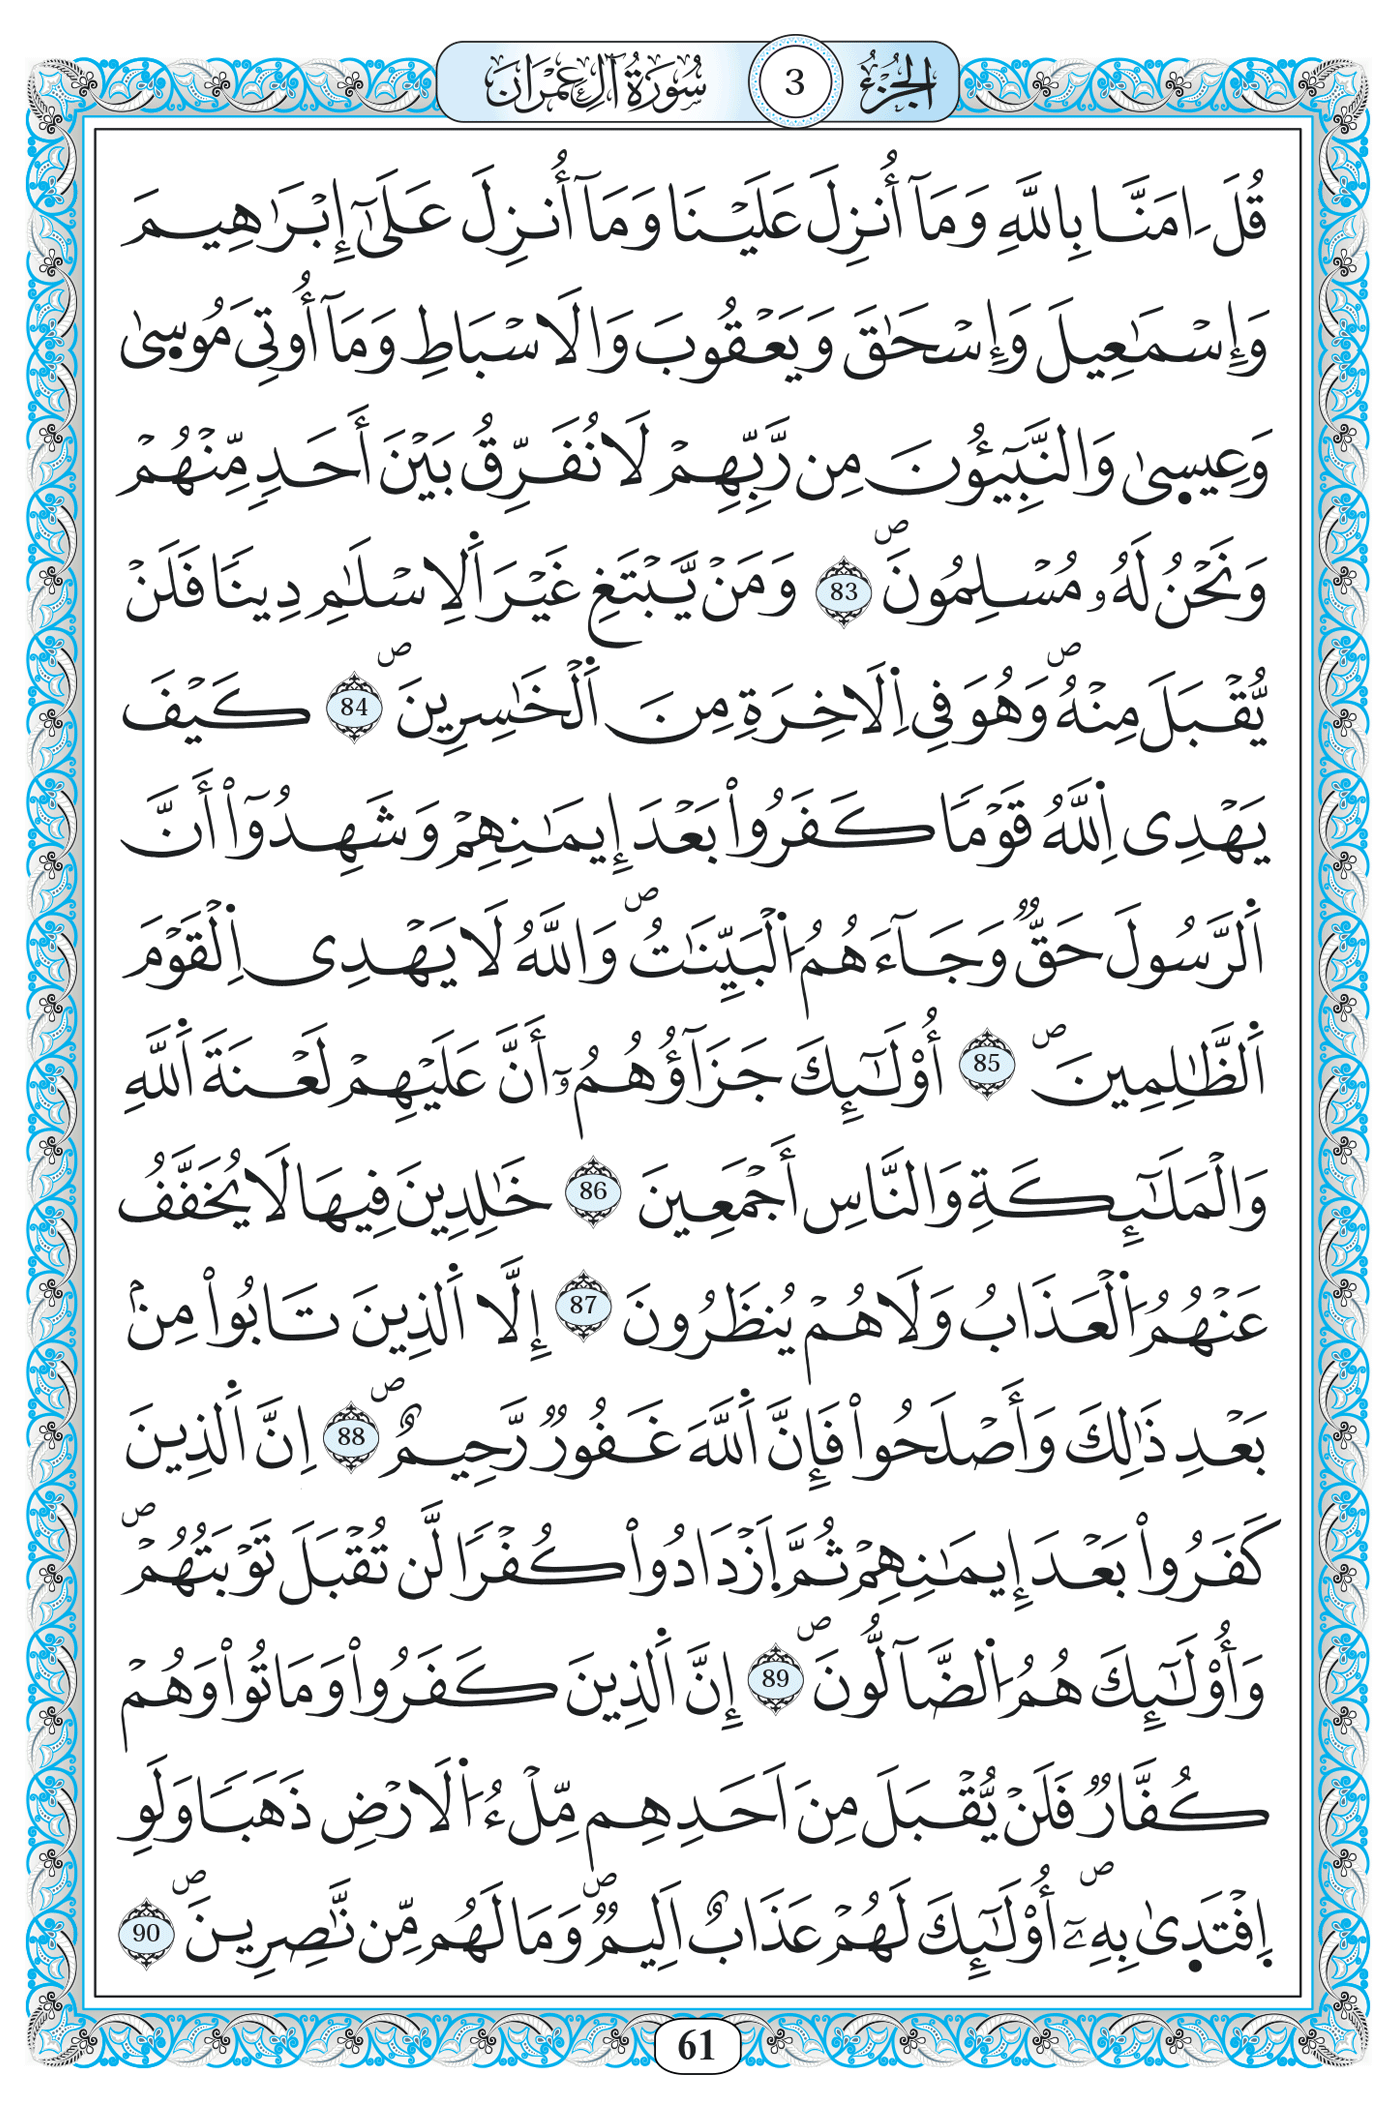 الجزء 3 سورة آل عمران
قُلَ ـ‍ِامَنَّا بِاللَّهِ وَمَآ أُنزِلَ عَلَيْنَا وَمَآ أُنزِلَ عَلَىٰٓ إِبْرَٰهِيمَ
وَإِسْمَٰعِيلَ وَإِسْحَٰقَ وَيَعْقُوبَ وَالَاسْبَاطِ وَمَآ أُوتِىَ مُوسِىٰ
وَعِيسِىٰ وَالنَّبِيٓـُٔونَ مِن رَّبِّهِمْ لَا نُفَرِّقُ بَيْنَ أَحَدٍ مِّنْهُمْ
وَنَحْنُ لَهُۥ مُسْلِمُونَۖ 83 وَمَنْ يَّبْتَغِ غَيْرَ اَلِاسْلَٰمِ دِينًا فَلَنْ
يُّقْبَلَ مِنْهُۖ وَهُوَ فِى اِلَاخِرَةِ مِنَ اَلْخَٰسِرِينَۖ 84 كَيْفَ
يَهْدِى اِللَّهُ قَوْمًا كَفَرُواْ بَعْدَ إِيمَٰنِهِمْ وَشَهِدُوٓاْ أَنَّ
اَلرَّسُولَ حَقٌّ وَجَآءَهُمُ اُلْبَيِّنَٰتُۖ وَاللَّهُ لَا يَهْدِى اِلْقَوْمَ
اَلظَّٰلِمِينَۖ 85 أُوْلَٰٓئِكَ جَزَآؤُهُمُۥٓ أَنَّ عَلَيْهِمْ لَعْنَةَ اَللَّهِ
وَالْمَلَٰٓئِكَةِ وَالنَّاسِ أَجْمَعِينَ 86 خَٰلِدِينَ فِيهَا لَا يُخَفَّفُ
عَنْهُمُ اُلْعَذَابُ وَلَا هُمْ يُنظَرُونَ 87 إِلَّا اَلذِينَ تَابُواْ مِنۢ
بَعْدِ ذَٰلِكَ وَأَصْلَحُواْ فَإِنَّ اَللَّهَ غَفُورٌ رَّحِيمٌۖ 88 اِنَّ اَلذِينَ
كَفَرُواْ بَعْدَ إِيمَٰنِهِمْ ثُمَّ اَزْدَادُواْ كُفْرًا لَّن تُقْبَلَ تَوْبَتُهُمْۖ
وَأُوْلَٰٓئِكَ هُمُ اُلضَّآلُّونَۖ 89 إِنَّ اَلذِينَ كَفَرُواْ وَمَاتُواْ وَهُمْ
كُفَّارٌ فَلَنْ يُّقْبَلَ مِنَ اَحَدِهِم مِّلْءُ اُلَارْضِ ذَهَبًا وَلَوِ
اِفْتَدِىٰ بِهِۦٓۖ أُوْلَٰٓئِكَ لَهُمْ عَذَابٌ اَلِيمٌۖ وَمَا لَهُم مِّن نَّٰصِرِينَۖ 90
61